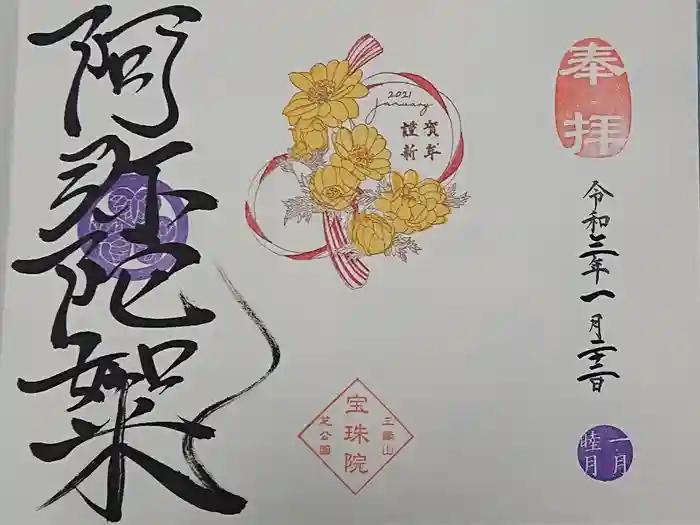 奉拝
令和三年一月二十二日
一月
睦月
2021
January
賀年
謹新
三縁山
宝珠院
芝公園
阿弥陀如来